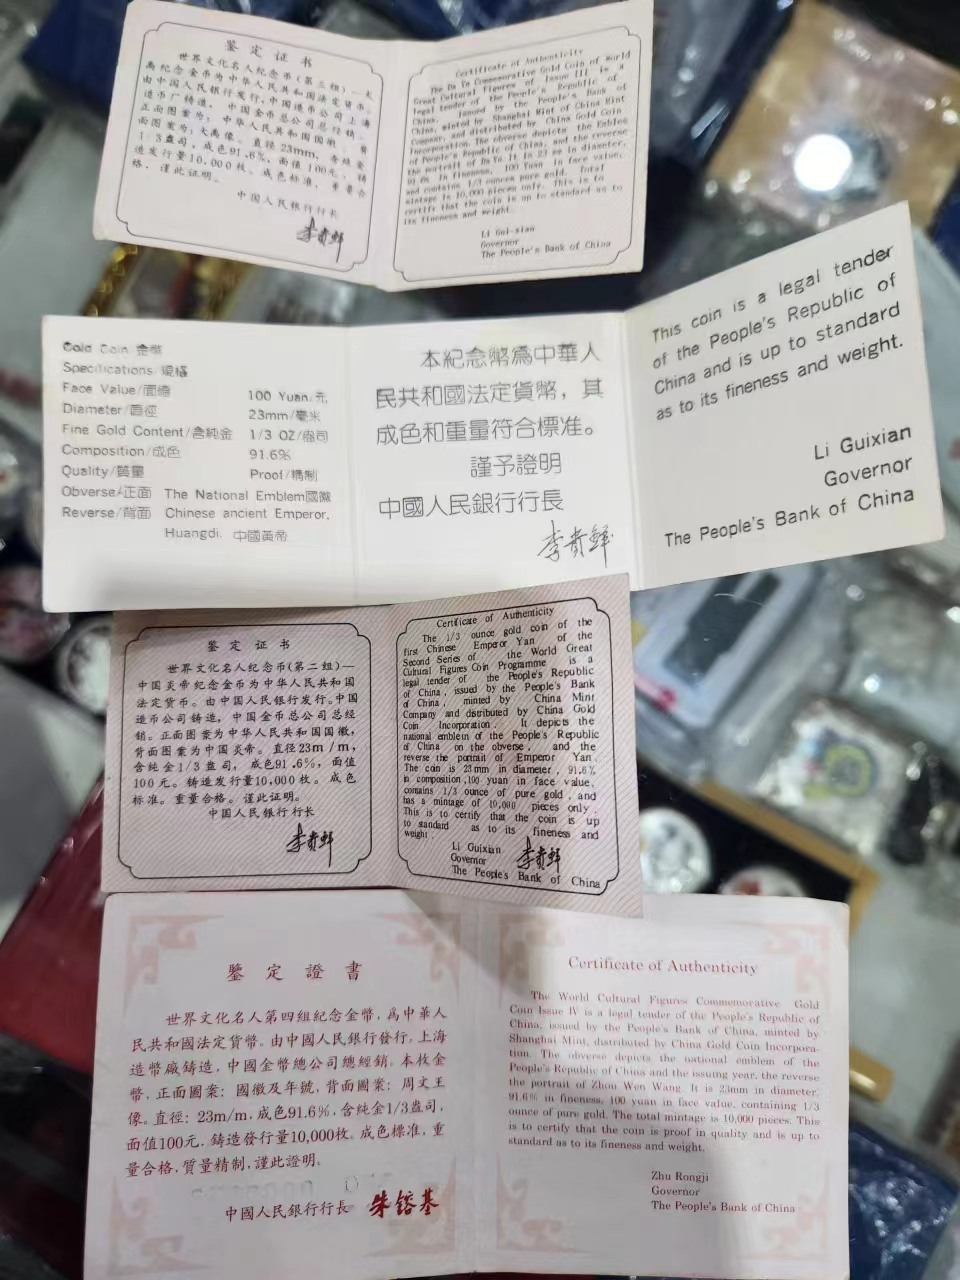 鉴定证书
世界文化名人纪念币(第三组)—大
禹纪念金币为中华人民共和国法定货币。
由中国人民银行发行,中国造币公司上海
造币厂铸造,中国金币总公司总经销。
正面图案为:中华人民共和国国徽,背
面图案为:大禹像。直径23mm,含纯金
1/3盎司,成色91.6%,面值100元,铸
造发行量10,000枚。成色标准,重量合
格,谨此证明。
中国人民银行行长
李贵鲜
Certificate of Authenticity
The Da Yu Commemorative Gold Coin of World
Great Cultural Figures of Issue III is a
legal tender of the People's Republic of
China, issued by the People's Bank of
China, minted by Shanghai Mint of China Mint
Company and distributed by China Gold Coin
Incorporation. The obverse depicts the Emblem
of People's Republic of China, and the reverse
the portrait of Da Yu. It is 23 mm in diameter,
91.6% in fineness, 100 Yuan in face value,
and contains 1/3 ounces pure gold. Total
mintage is 10,000 pieces only. This is to
certify that the coin is up to standard as to
its fineness and weight.
Li Gui-xian
Governor
The People's Bank of China
Gold Coin 金幣
Specifications/規格
Face Value/面値 100 Yuan/元
Diameter/直徑 23mm/毫米
Fine Gold Content/含純金 1/3 OZ/盎司
Composition/成色 91.6%
Quality/質量 Proof/精制
Obverse/正面 The National Emblem國徽
Reverse/背面 Chinese ancient Emperor,
Huangdi. 中國黃帝
本紀念幣爲中華人
民共和國法定貨幣,其
成色和重量符合標准。
謹予證明
中國人民銀行行長
李貴鮮
This coin is a legal tender
of the People's Republic of
China and is up to standard
as to its fineness and weight.
Li Guixian
Governor
The People's Bank of China
鉴定证书
世界文化名人纪念币(第二组)—
中国炎帝纪念金币为中华人民共和国
法定货币。由中国人民银行发行。中国
造币公司铸造,中国金币总公司总经
销。正面图案为中华人民共和国国徽,
背面图案为中国炎帝。直径23m/m,
含纯金1/3盎司,成色91.6%,面值
100元。铸造发行量10,000枚。成色
标准。重量合格。谨此证明。
中国人民银行行长
李贵鲜
Certificate of Authenticity
The 1/3 ounce gold coin of the
first Chinese Emperor Yan of the
Second Series of the World Great
Cultural Figures Coin Programme is a
legal tender of the People's Republic
of China, issued by the People's Bank
of China, minted by China Mint
Company and distributed by China Gold
Coin Incorporation. It depicts the
national emblem of the People's Republic
of China on the obverse, and the
reverse the portrait of Emperor Yan.
The coin is 23mm in diameter, 91.6%
in composition,100 yuan in face value,
contains 1/3 ounce of pure gold, and
has a mintage of 10,000 pieces only.
This is to certify that the coin is up
to standard as to its fineness and
weight.
Li Guixian
Governor 李贵鲜
The People's Bank of China
鑒定證書
世界文化名人第四組紀念金幣,爲中華人
民共和國法定貨幣。由中國人民銀行發行,上海
造幣廠鑄造,中國金幣總公司總經銷。本枚金
幣,正面圖案:國徽及年號,背面圖案:周文王
像。直徑:23m/m,成色91.6%,含純金1/3盎司,
面值100元,鑄造發行量10,000枚。成色標准,重
量合格,質量精制,謹此證明。
中國人民銀行行長 朱鎔基
Certificate of Authenticity
The World Cultural Figures Commemorative Gold
Coin Issue IV is a legal tender of the People's Republic of
China, issued by the People's Bank of China, minted by
Shanghai Mint, distributed by China Gold Coin Incorpora-
tion. The obverse depicts the national emblem of the
People's Republic of China and the issuing year, the reverse
the portrait of Zhou Wen Wang. It is 23mm in diameter,
91.6% in fineness, 100 yuan in face value, containing 1/3
ounce of pure gold. The total mintage is 10,000 pieces. This
is to certify that the coin is proof in quality and is up to
standard as to its fineness and weight.
Zhu Rongji
Governor
The People's Bank of China